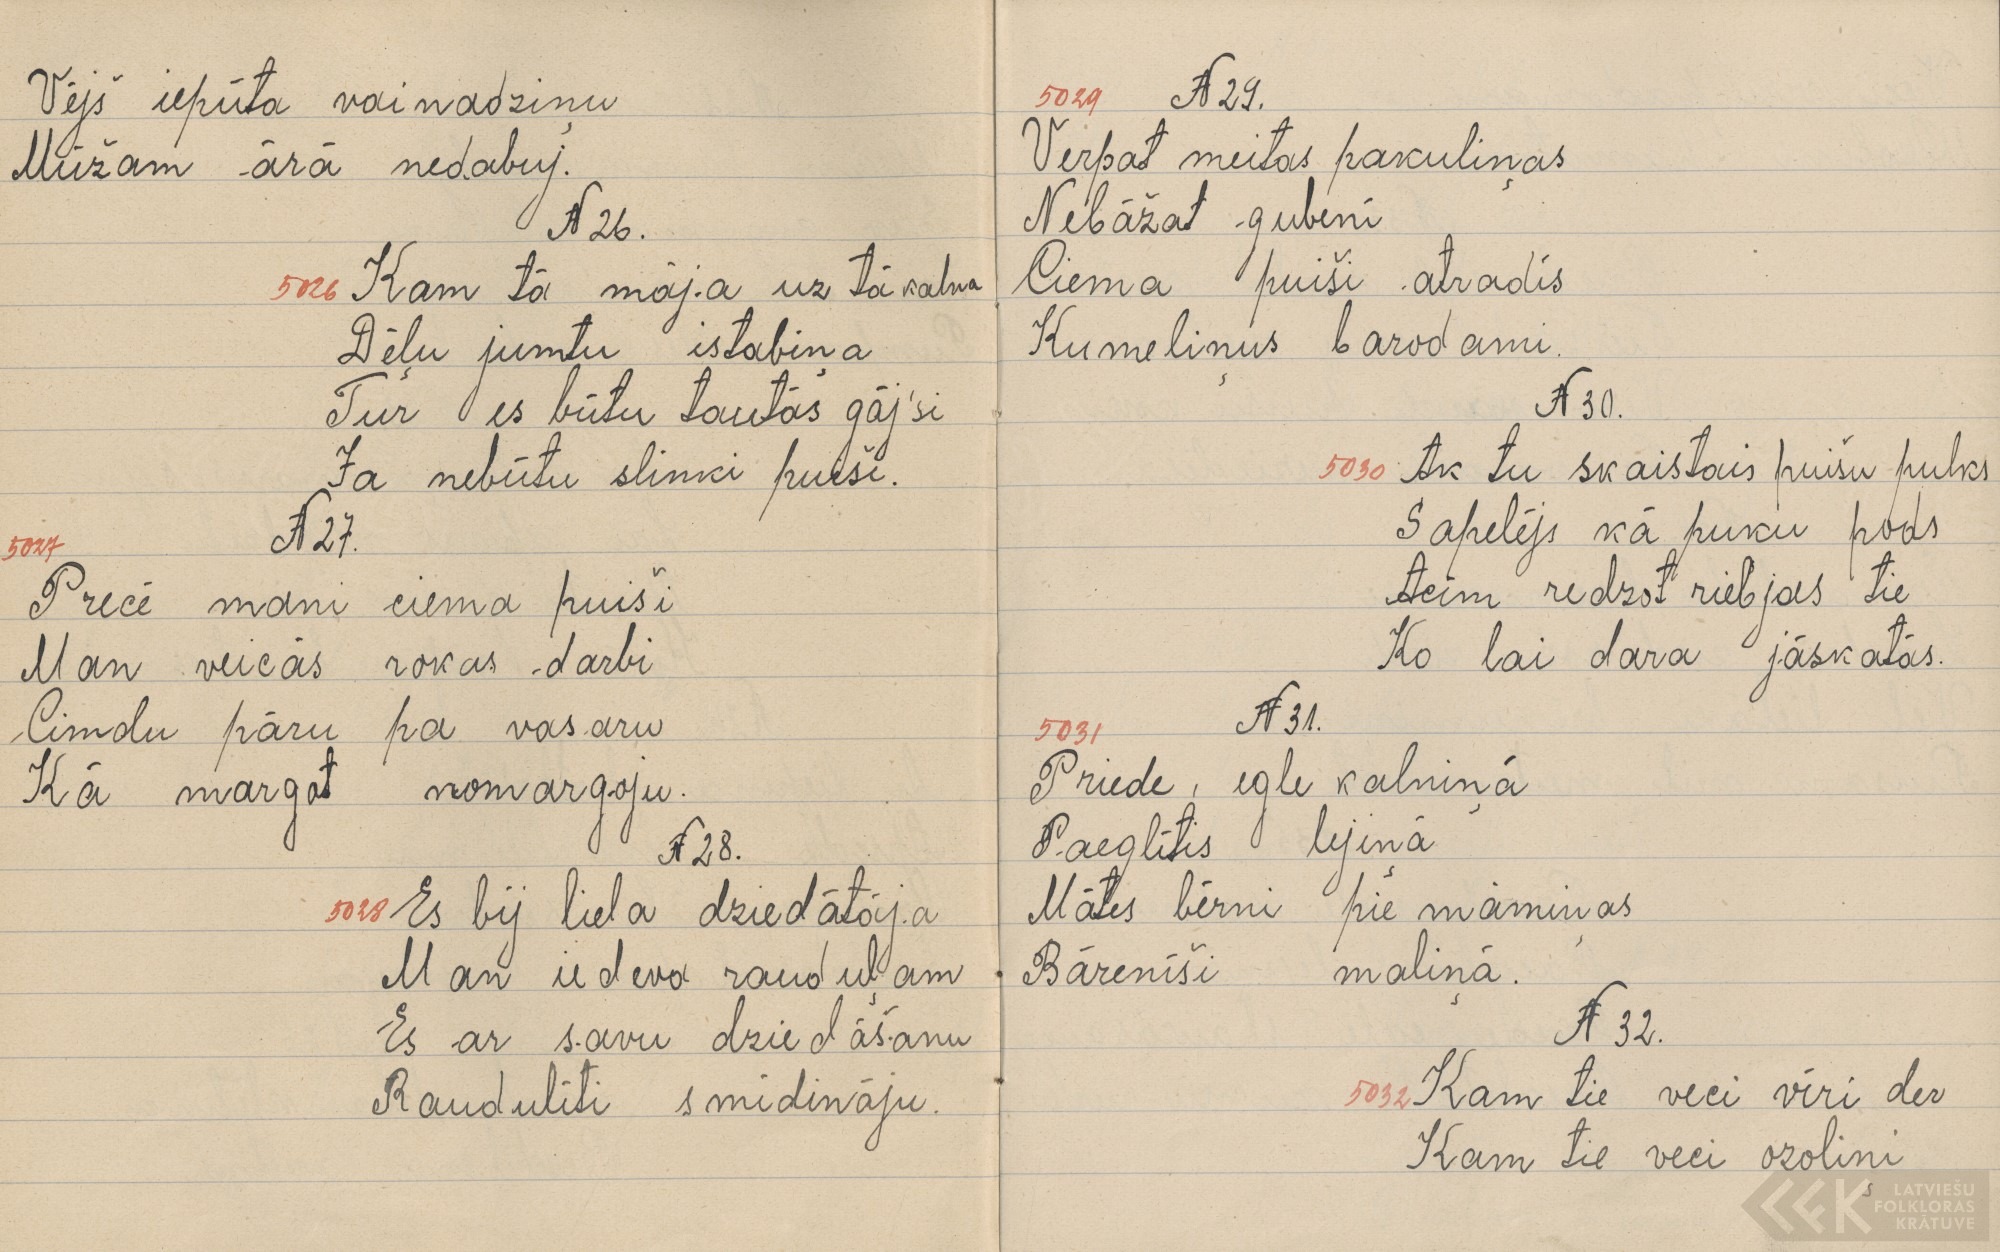 Vējš iepūta vainadziņu
Mūžam ārā nedabuj.
N 26.
5026 Kam tā māja uz tā kalna
Dēļu jumtu istabiņa
Tur es būtu tautās gāj'si
Ja nebūtu slinki puiši.
5027 N 27.
Precē mani ciema puiši
Man veicās rokas darbi
Cimdu pāru pa vasaru
Kā margot nomargoju.
N 28.
5028 Es bij liela dziedātāja
Man iedeva rauduļam
Es ar savu dziedāšanu
Raudulīti smīdināju.
5029 N 29.
Verpat meitas pakuliņas
Nebāžat gubenī
Ciema puiši atradīs
Kumeliņus barodami.
N 30.
5030 Ak tu skaistais puišu pulks
Sapelējs kā puķu pods
Acīm redzot riebjas tie
Ko lai dara jāskatās.
5031 N 31.
Priede, egle kalniņā
Paeglītis lejiņā
Mātes bērni pie māmiņas
Bārenīši maliņā.
N 32.
5032 Kam tie veci vīri der
Kam tie veci ozoliņi
LATVIEŠU
FOLKLORAS
KRĀTUVE